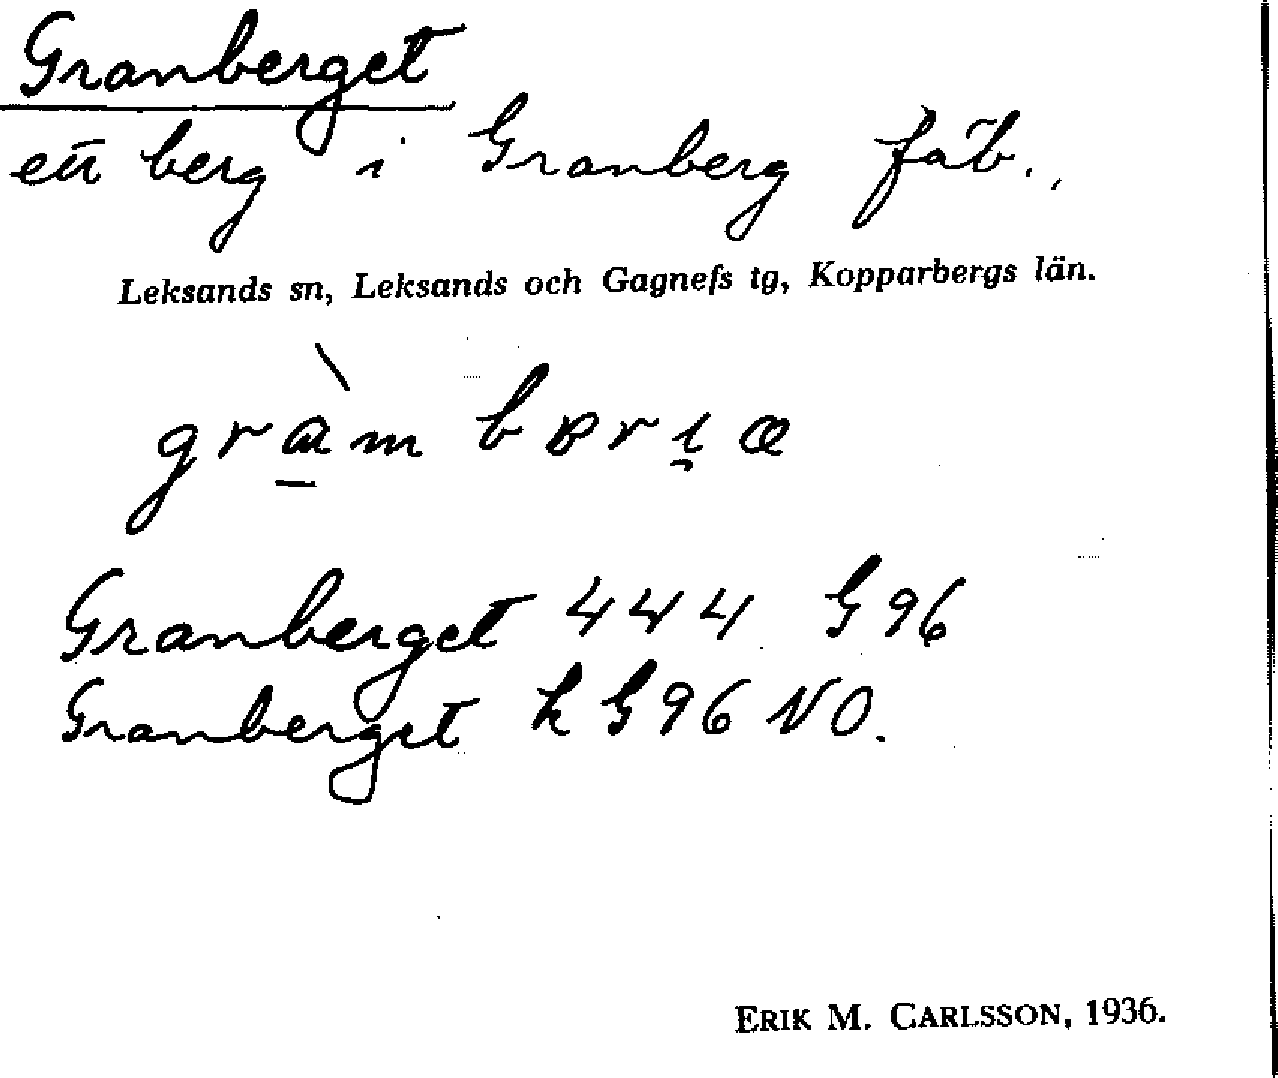 Granberget
ett berg i Granberg fäb.,
Leksands sn, Leksands och Gagnefs tg, Kopparbergs län.
Granberget 444 G96
Granberget k G96 NO.
ERIK M. CARLSSON, 1936.